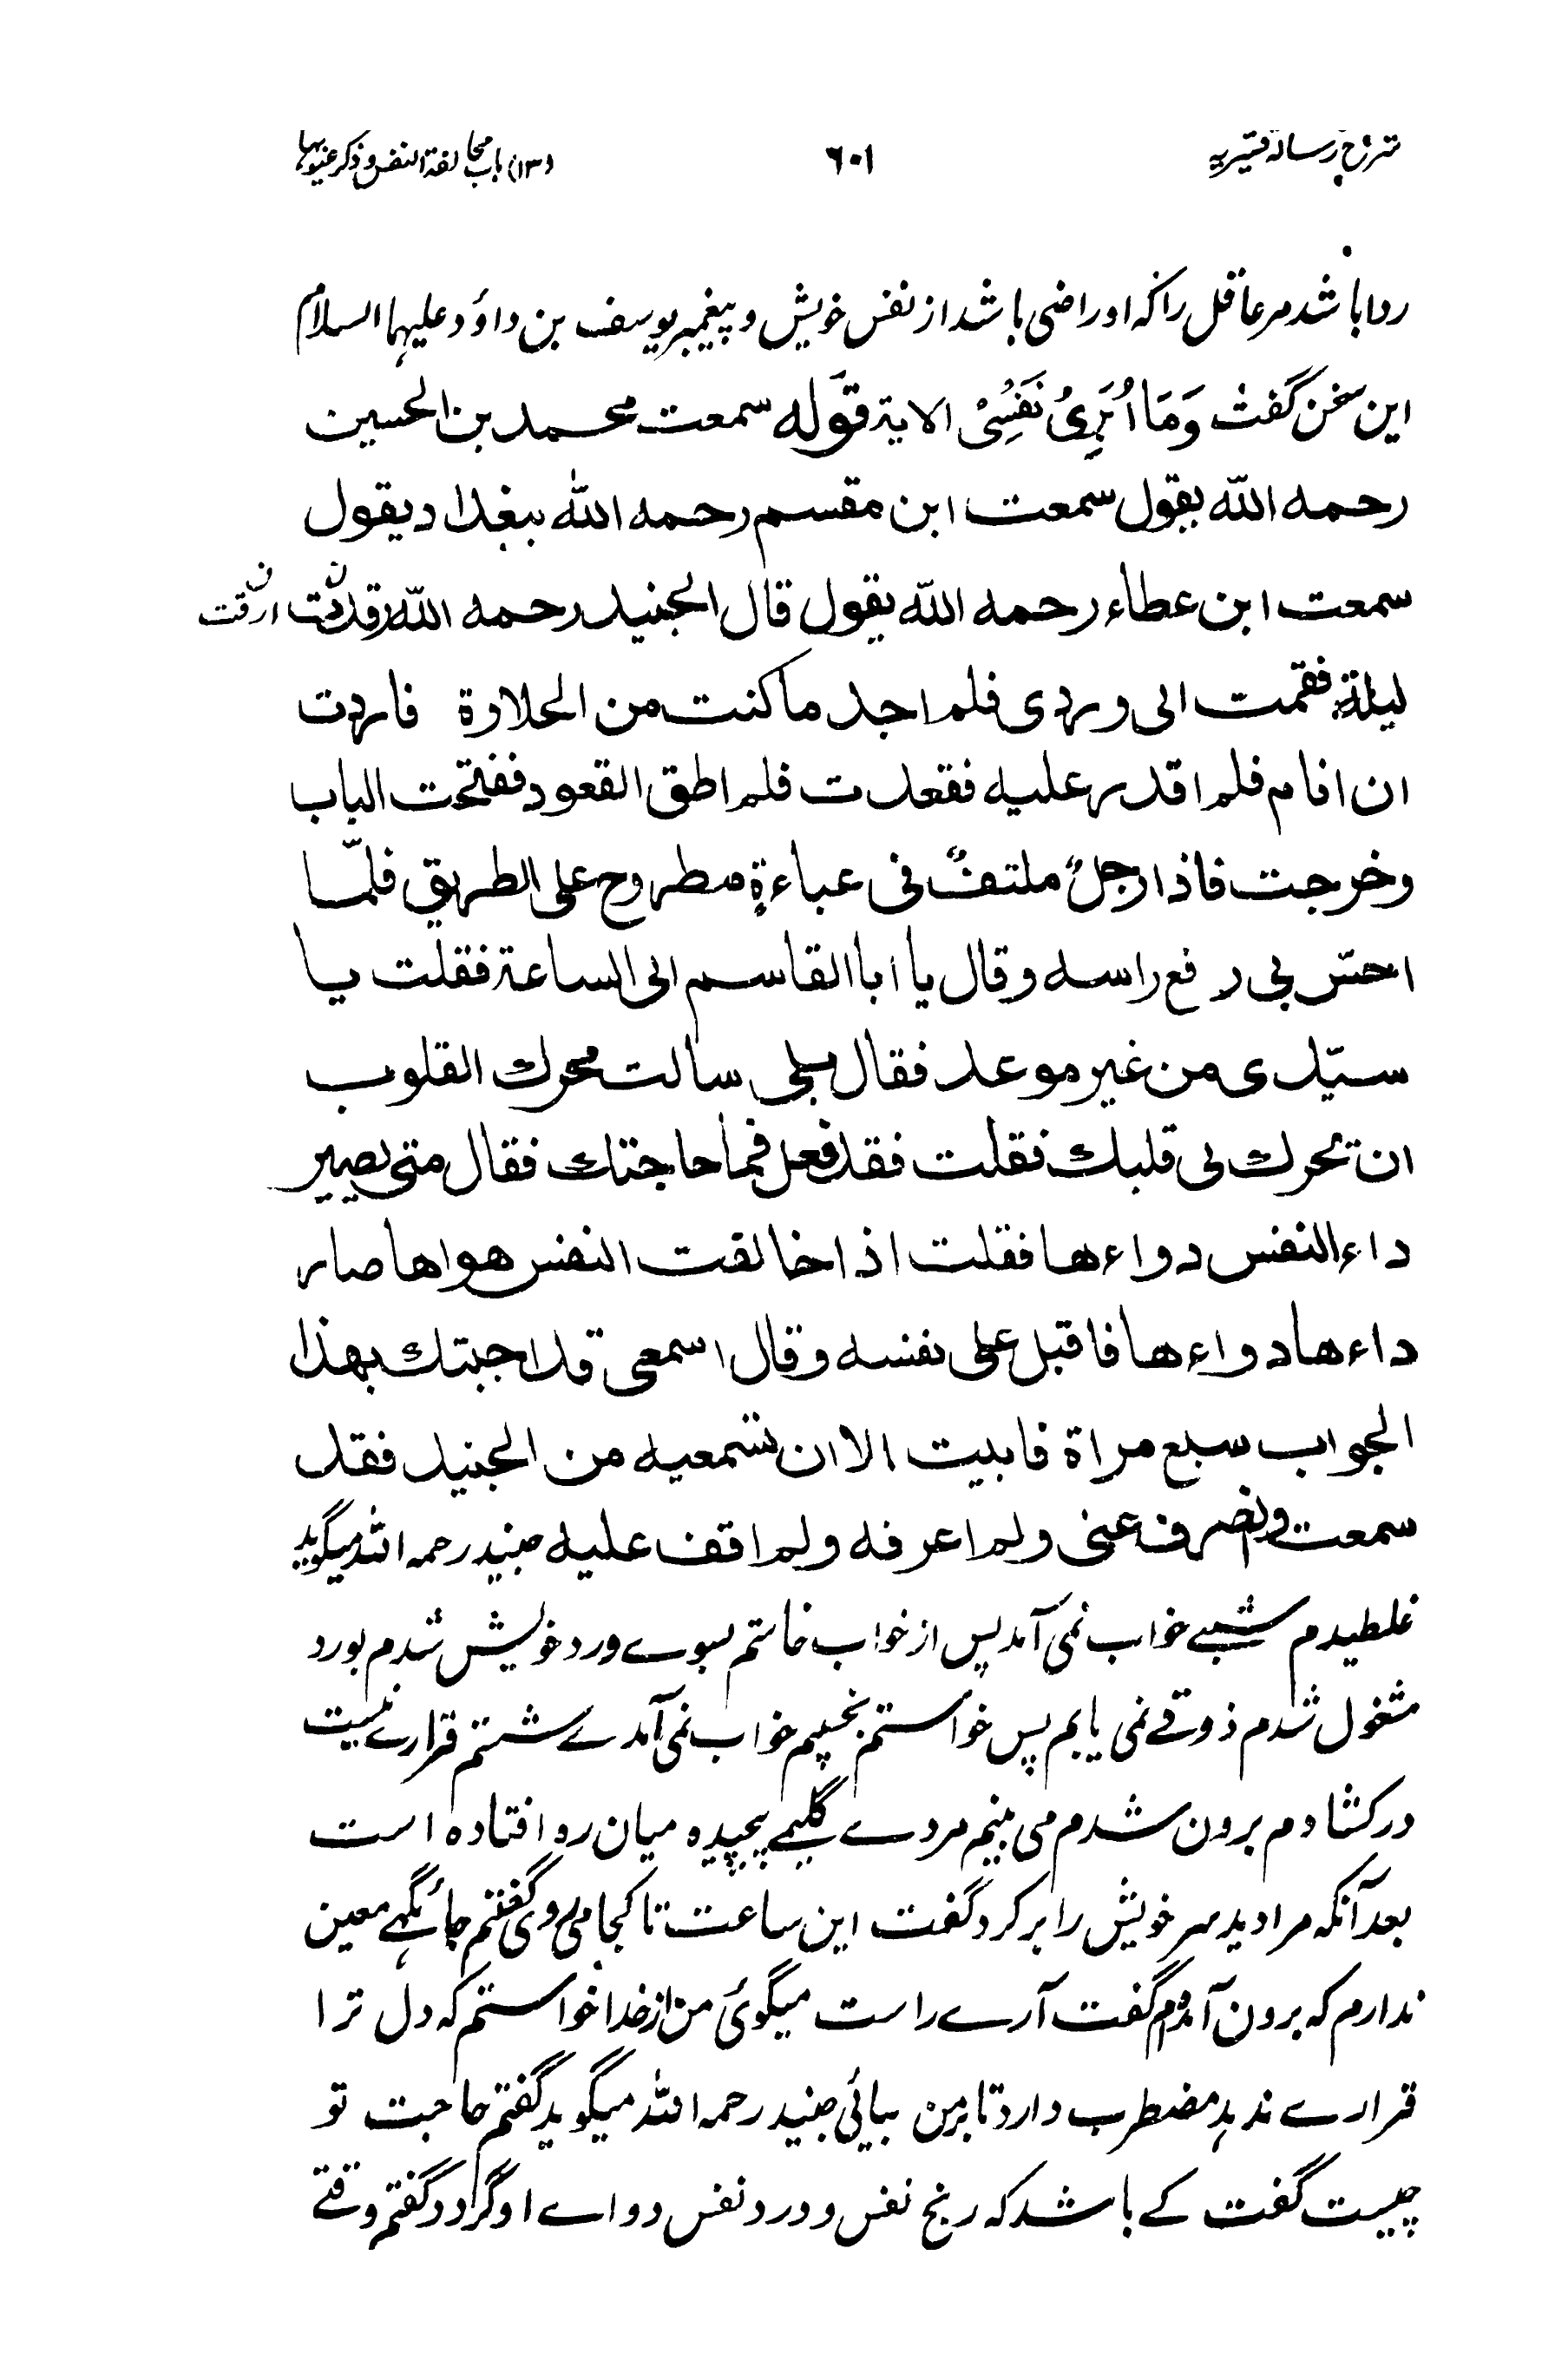 شرح رسالہ قشیریہ ٦٠١ (١٣) باب مخالفة النفس و ذکر عیوبہا
روا باشد مر عاقل را کہ او راضی باشد از نفس خویش و پیغمبر یوسف بن داؤد علیہما السلام
این سخن گفت وَمَا اُبَرِّئُ نَفْسِیْ الایة قوله سمعت محمد بن الحسین
رحمه الله یقول سمعت ابن مقسم رحمه الله ببغداد یقول
سمعت ابن عطاء رحمه الله یقول قال الجنید رحمه الله رقدت ن ارقت ن
لیلة فقمت الی وردی فلم اجد ما کنت من الحلاوة فاردت
ان انام فلم اقدر علیه فقعدت فلم اطق القعود ففتحت الباب
وخرجت فاذا رجلٌ ملتفٌ فی عباءةٍ مطروح علی الطریق فلمّا
احسّ بی رفع راسه وقال یا ابا القاسم الی الساعة فقلت یا
سیّدی من غیر موعد فقال بلی سالت محرك القلوب
ان تحرك لی قلبك فقلت فقد فعل فما حاجتك فقال متی یصیر
داء النفس دواءها فقلت اذا خالفت النفس هواها صار
داءها دواءها فاقبل علی نفسه وقال اسمعی قد اجبتك بهذا
الجواب سبع مراة فابیت الا ان تسمعیه من الجنید فقد
سمعت وانصرف عنی ولم اعرفه ولم اقف علیه جنید رحمہ اللہ میگوید
غلطیدم شبے خواب نمی آمد پس از خواب خاستم بسوے ورد خویش شدم بورد
مشغول شدم ذوقے نمی یابم پس خواستم بخسپم خواب نمی آمدے شستم قرارے نیست
در کشادم برون شدم می بینم مردے گلیمے پیچیدہ میان رہ افتادہ است
بعد آنکہ مرا دید سر خویش را بر کرد گفت این ساعت تا کجا می روی گفتم جائگہے معین
ندارم کہ برون آمدم گفت آرے راست میگوئی من از خدا خواستم کہ دل ترا
قرارے ندہد مضطرب دارد تا بر من بیائی جنید رحمہ اللہ میگوید گفتم حاجت تو
چیست گفت کے باشد کہ رنج نفس و درد نفس دواے او گردد گفتم وقتے